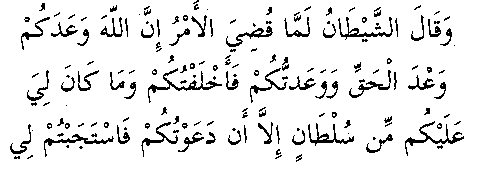 وَقَالَ الشَّيْطَانُ لَمَّا قُضِيَ الأَمْرُ إِنَّ اللَّهَ وَعَدَكُمْ
وَعْدَ الْحَقِّ وَوَعَدتُّكُمْ فَأَخْلَفْتُكُمْ وَمَا كَانَ لِيَ
عَلَيْكُم مِّن سُلْطَانٍ إِلاَّ أَن دَعَوْتُكُمْ فَاسْتَجَبْتُمْ لِي